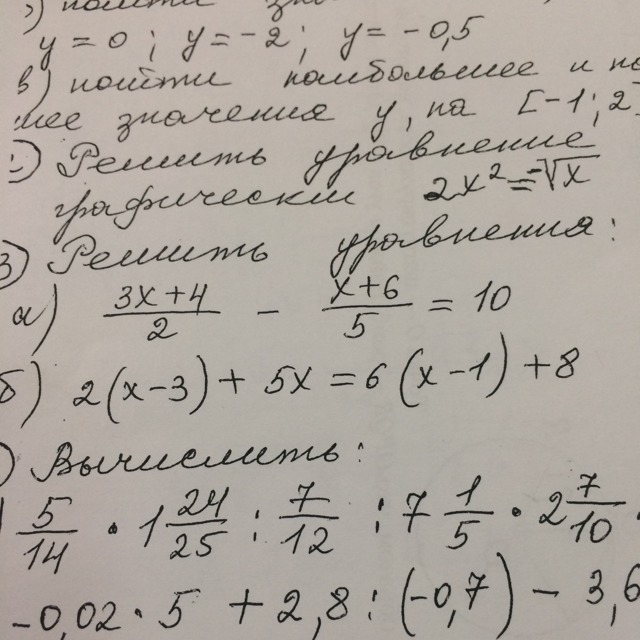 найти
y = 0 ; y = -2 ; y = -0,5
в) найти наибольшее и
значения y, на [-1; 2
Решить уравнение
графически 2x² = -√x
3) Решить уравнения:
а) (3x+4)/2 - (x+6)/5 = 10
б) 2(x-3) + 5x = 6(x-1) + 8
) Вычислить:
5/14 · 1 24/25 : 7/12 : 7 1/5 · 2 7/10
-0,02 · 5 + 2,8 : (-0,7) - 3,6